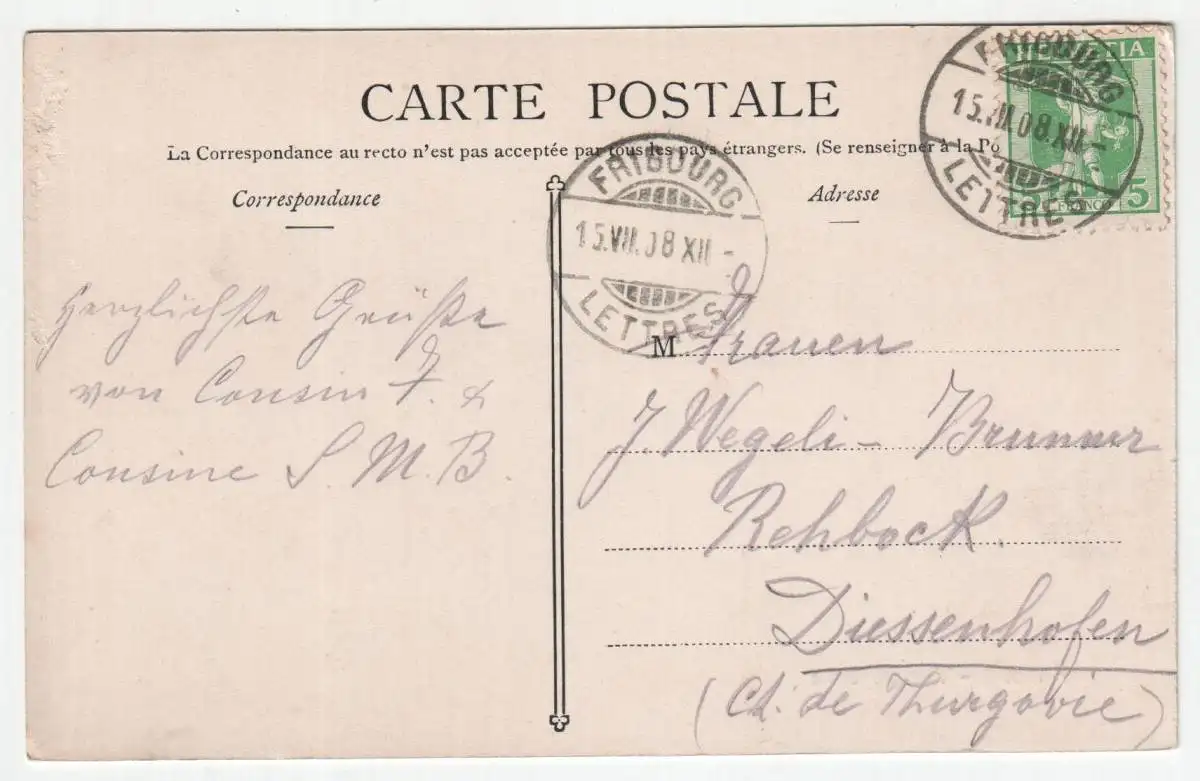 CARTE POSTALE
La Correspondance au recto n'est pas acceptée par tous les pays étrangers. (Se renseigner à la Po
Correspondance
Adresse
HELVETIA
FRANCO 5
FRIBOURG
15.VII.08 XII -
LETTRES
FRIBOURG
15.VII.08 XII -
LETTRES
Herzlichste Grüße
von Cousin F. &
Cousine S. M. B.
M. Frauen
J. Wegeli - Brunner
Rehbock.
Diessenhofen
(Ct. de Thurgovie)